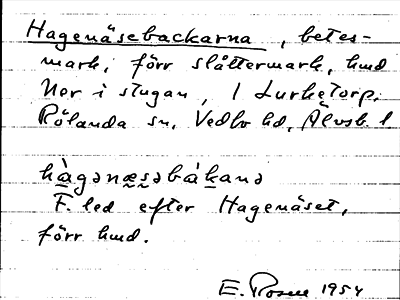 Hagenäsebackarna, betes-
mark, förr slåttermark, hmd
Nor i stugan, 1 Lurketorp,
Rölanda sn, Vedbo hd, Älvsb. l.
hàgənæsəbákanə
F. led efter Hagenäset,
förr hmd.
E. Rosen 1954